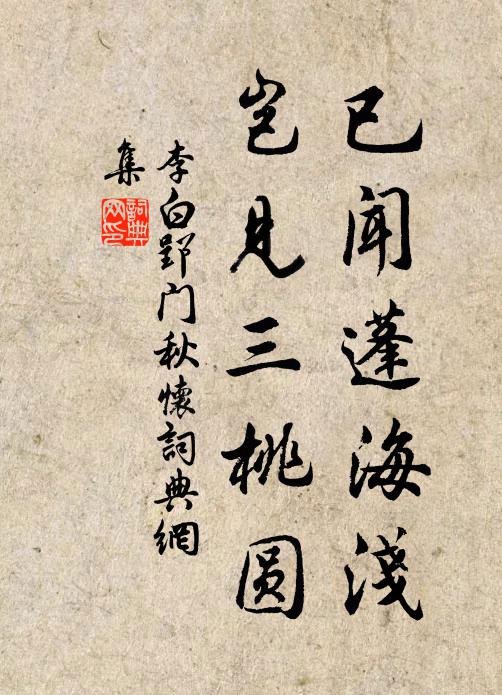 已闻蓬海浅
岂见三桃圆
李白郢门秋怀词典网
集
词典
网印